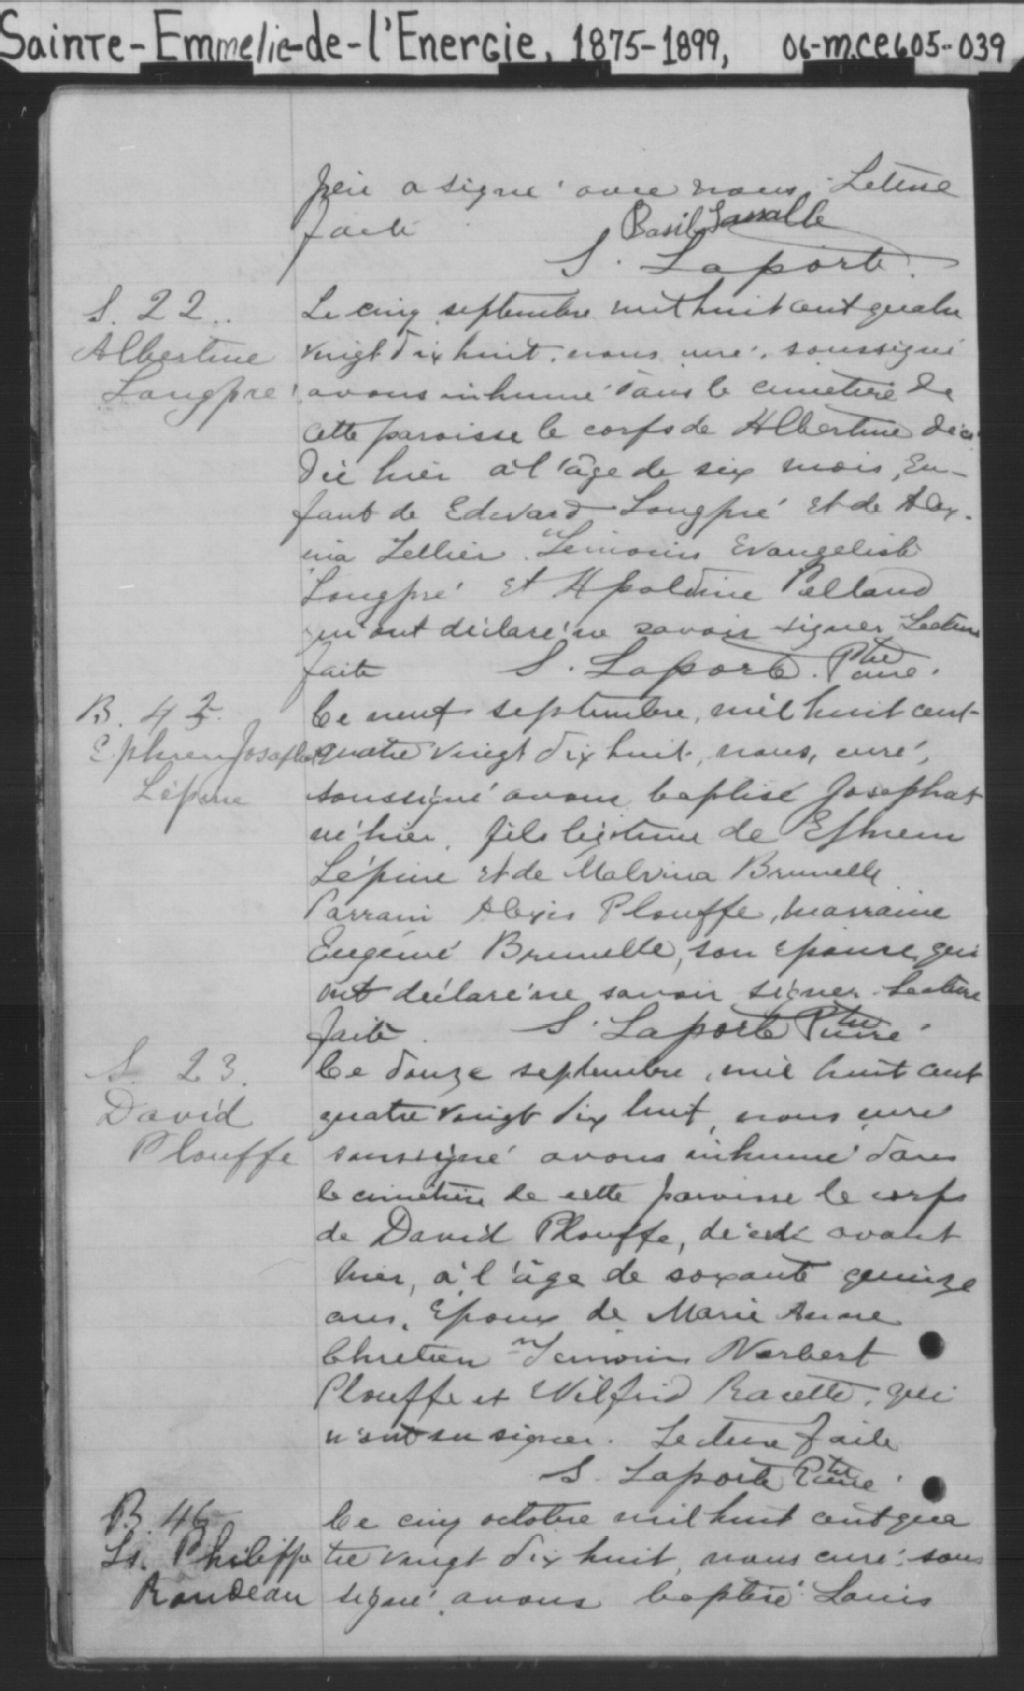 Sainte-Emmelie-de-l'Energie, 1875-1899, 06-m.ce605-039
père a signé avec nous. Lecture
faite
Basil Lasalle
S. Laporte
S. 22.
Albertine
Longpré
Le cinq septembre mil huit cent quatre
vingt dix huit, nous curé, soussigné
avons inhumé dans le cimetière de
cette paroisse le corps de Albertine décé
dée hier à l'âge de six mois, En-
fant de Edward Longpré et de Alex-
ina Lellier. Témoins Evangeliste
Longpré et Apoldine Pelland
qui ont déclaré ne savoir signer Lecture
faite S. Laporte. Ptre
Curé.
B. 45.
Ephrem Josaphat
Lépine
Ce neuf septembre, mil huit cent
quatre vingt dix huit, nous, curé,
soussigné avons baptisé Josephat
né hier, fils légitime de Ephrem
Lépine et de Malvina Brunelle
Parrain Alexis Plouffe, marraine
Eugénie Brunelle, son épouse, qui
ont déclaré ne savoir signer. Lecture
faite. S. Laporte Ptre
Curé
S. 23.
David
Plouffe
Ce douze septembre, mil huit cent
quatre vingt dix huit, nous curé
soussigné avons inhumé dans
le cimetière de cette paroisse le corps
de David Plouffe, décédé avant
hier, à l'âge de soixante quinze
ans, Epoux de Marie Anne
Chretien Témoins Norbert
Plouffe et Wilfrid Racette, qui
n'ont su signer. Lecture faite
S. Laporte Ptre
Curé
B. 46
Ls. Philippe
Rondeau
Ce cinq octobre mil huit cent qua
tre vingt dix huit, nous curé, sous
signé, avons baptisé Louis